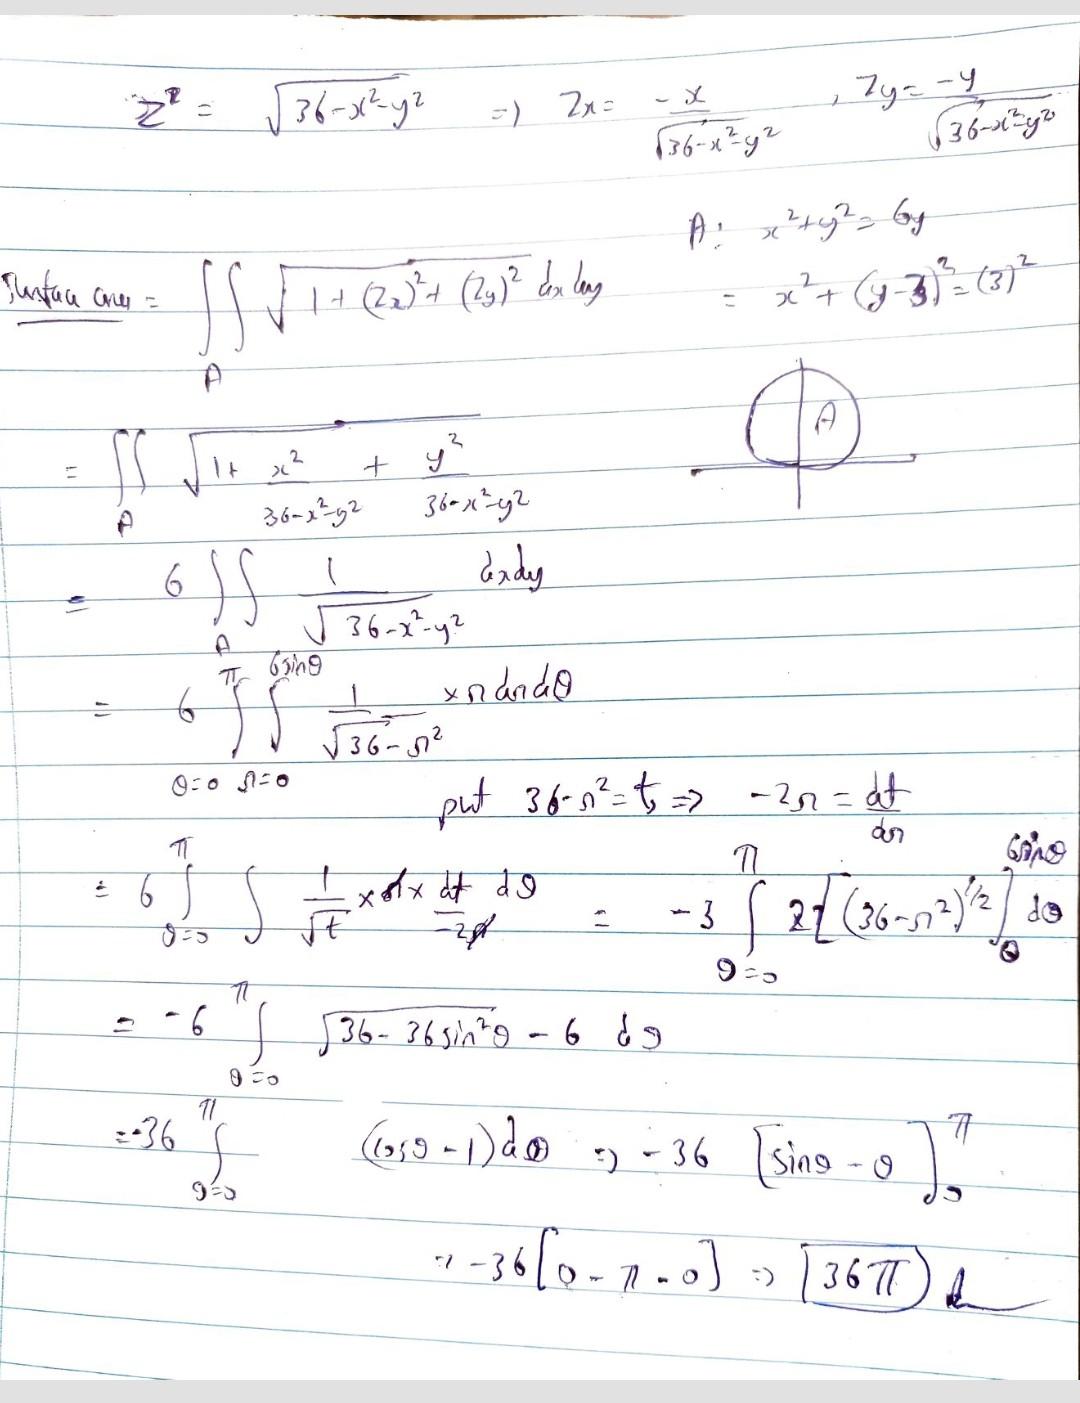 z = √(36-x²-y²) => Zx = -x/√(36-x²-y²) , Zy = -y/√(36-x²-y²)
A: x²+y² = 6y
Surface area = ∬_A √(1+(Zx)²+(Zy)²) dx dy
= x²+(y-3)² = (3)²
A
= ∬_A √(1+ x²/(36-x²-y²) + y²/(36-x²-y²))
= 6 ∬_A 1/√(36-x²-y²) dxdy
= 6 ∫_{θ=0}^{π} ∫_{r=0}^{6sinθ} 1/√(36-r²) × r dr dθ
put 36-r² = t => -2r = dt/dr
= 6 ∫_{θ=0}^{π} ∫ 1/√t × r × dt/-2r dθ = -3 ∫_{θ=0}^{π} 2[(36-r²)^{1/2}]_0^{6sinθ} dθ
= -6 ∫_{θ=0}^{π} √(36-36sin²θ) - 6 dθ
= -36 ∫_{θ=0}^{π} (cosθ-1)dθ => -36 [sinθ-θ]_0^π
=> -36[0-π-0] => 36π